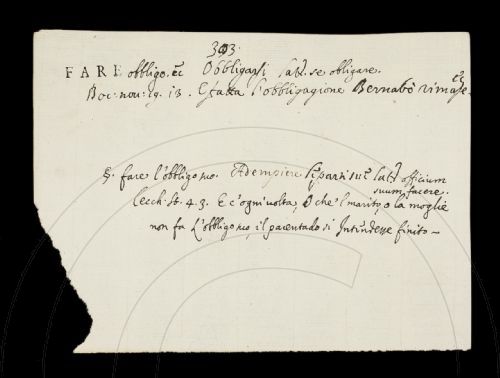 303.
FARE obbligo. ec Obbligarsi lat. se obligare.
Boc. nov. 19. 13. E fatta l'obbligagione Bernabò rimase. ec
§. fare l'obbligo suo. Adempiere le parti sue lat. officium
suum facere.
Cecch. St. 4. 3. E c'ogni volta, O che 'l marito, o la moglie
non fa L'obbligo suo, il parentado si Intendesse finito~